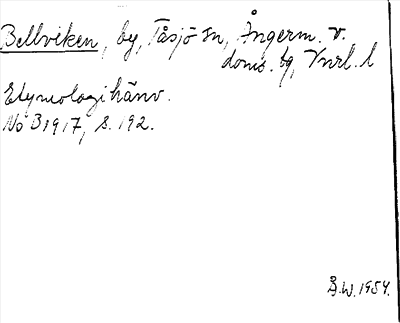 Bellviken, by, Tåsjö sn, Ångerm. v.
doms. bg, Vnrl. l
Etymologihänv.
No B 1917, s. 192.
Å.W. 1954.